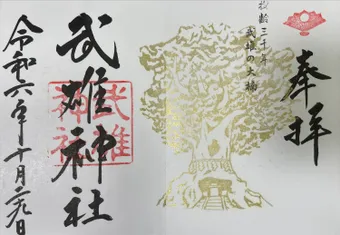 奉拝
樹齢三千年
武雄の大楠
武雄神社
武雄
神社
令和六年十月二九日